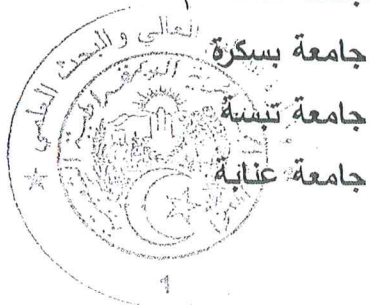 جامعة بسكرة
جامعة تبسة
جامعة عنابة
العالي والبحث العلمي
1